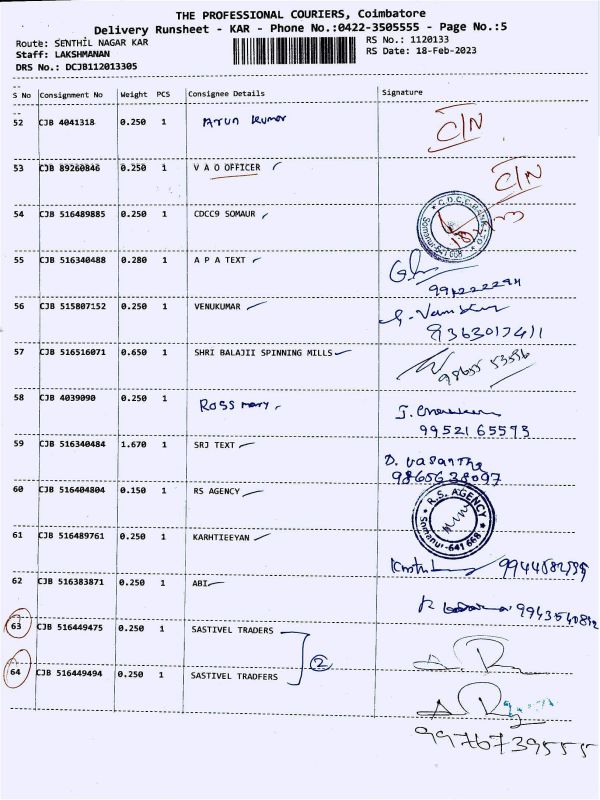 THE PROFESSIONAL COURIERS, Coimbatore
Delivery Runsheet - KAR - Phone No.:0422-3505555 - Page No.:5
Route: SENTHIL NAGAR KAR
RS No.: 1120133
Staff: LAKSHMANAN
RS Date: 18-Feb-2023
DRS No.: DCJB112013305
S No Consignment No Weight PCS Consignee Details Signature
52 CJB 4041318 0.250 1 Arun Kumar C/N
53 CJB 89260846 0.250 1 V A O OFFICER C/N
54 CJB 516489885 0.250 1 CDCC9 SOMAUR
55 CJB 516340488 0.280 1 A P A TEXT
56 CJB 515807152 0.250 1 VENUKUMAR
9363017411
57 CJB 516516071 0.650 1 SHRI BALAJII SPINNING MILLS
98655 53596
58 CJB 4039090 0.250 1 Ross mary
99521 65593
59 CJB 516340484 1.670 1 SRJ TEXT
D. Vasantha
9865638097
60 CJB 516404804 0.150 1 RS AGENCY
R.S. AGENCY
Somanur-641 668
61 CJB 516489761 0.250 1 KARHTIEEYAN
62 CJB 516383871 0.250 1 ABI
63 CJB 516449475 0.250 1 SASTIVEL TRADERS
2
64 CJB 516449494 0.250 1 SASTIVEL TRADFERS
9976739555